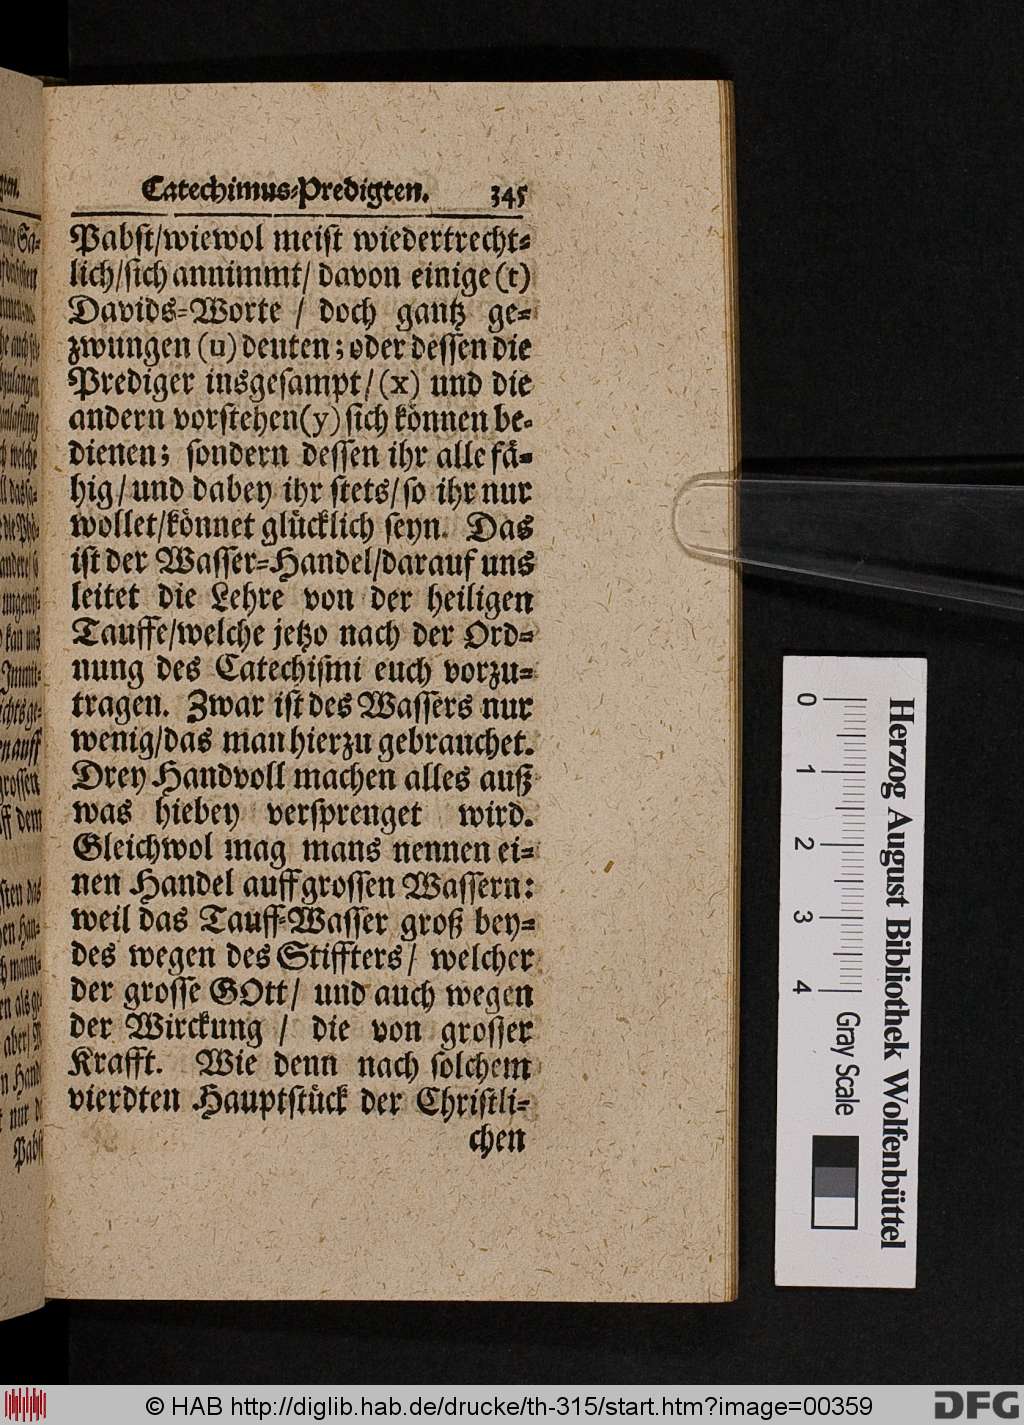 Catechimus-Predigten. 345
Pabst/wiewol meist wiedertrecht-
lich/sich annimmt/ davon einige (t)
Davids-Worte / doch gantz ge-
zwungen (u) deuten; oder dessen die
Prediger insgesampt/ (x) und die
andern vorstehen (y) sich können be-
dienen; sondern dessen ihr alle fä-
hig/ und dabey ihr stets/ so ihr nur
wollet/könnet glücklich seyn. Das
ist der Wasser-Handel/darauf uns
leitet die Lehre von der heiligen
Tauffe/welche jetzo nach der Ord-
nung des Catechismi euch vorzu-
tragen. Zwar ist des Wassers nur
wenig/das man hierzu gebrauchet.
Drey Handvoll machen alles auß
was hiebey versprenget wird.
Gleichwol mag mans nennen ei-
nen Handel auff grossen Wassern:
weil das Tauff-Wasser groß bey-
des wegen des Stiffters/ welcher
der grosse GOtt/ und auch wegen
der Wirckung / die von grosser
Krafft. Wie denn nach solchem
vierdten Hauptstück der Christli-
chen
Herzog August Bibliothek Wolfenbüttel
0 1 2 3 4
Gray Scale
© HAB http://diglib.hab.de/drucke/th-315/start.htm?image=00359
DFG